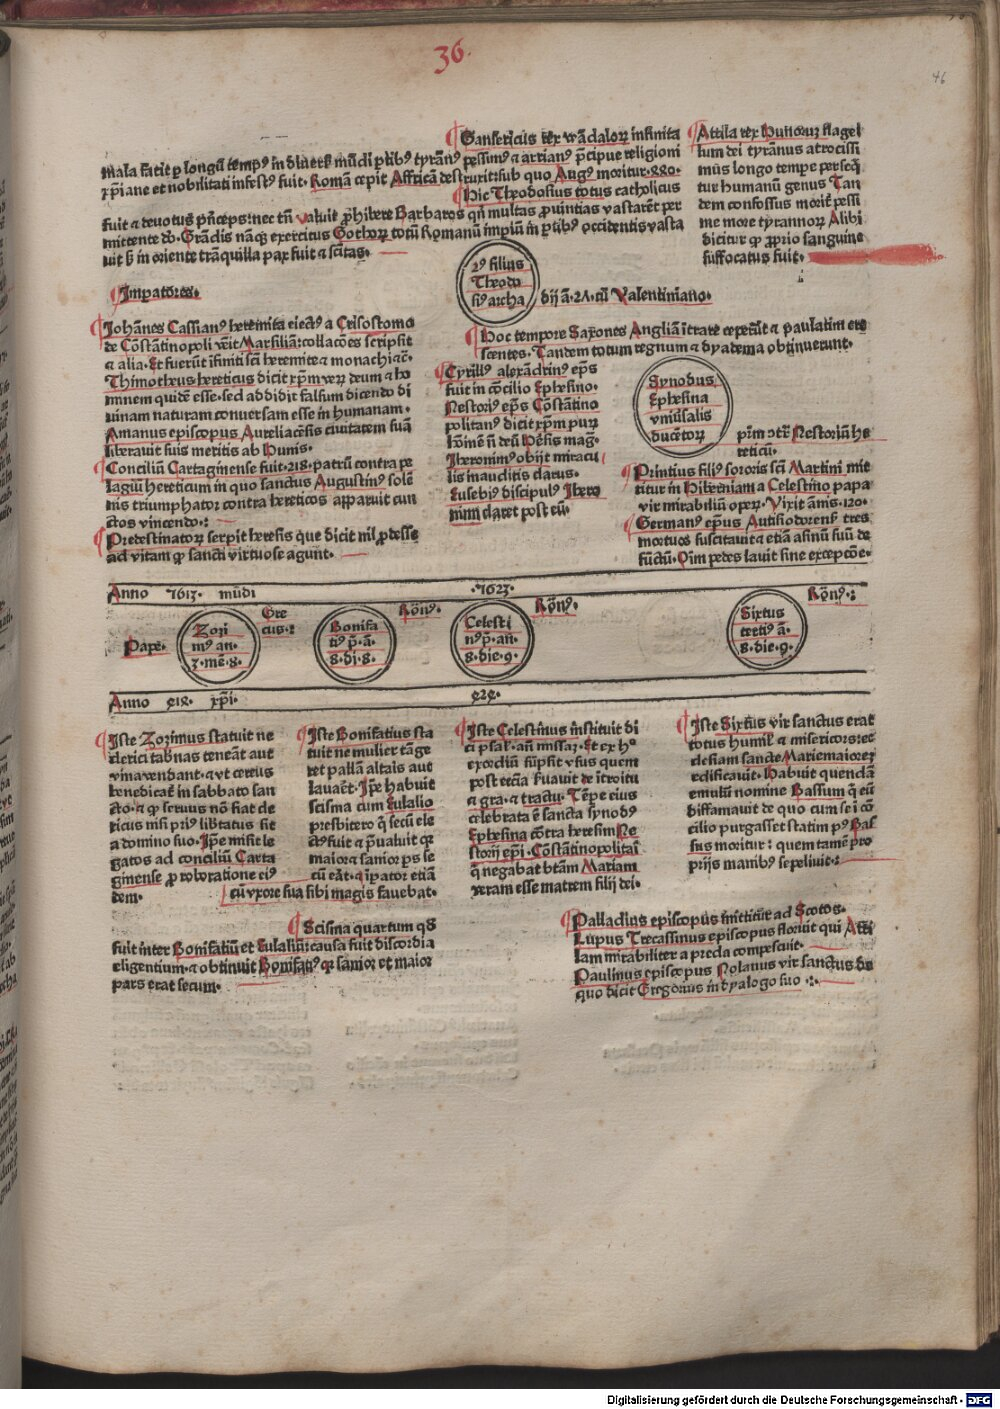 36.
46
¶Gansericus rex wãdalorꝝ infinita
mala fecit ꝑ longũ tempꝰ in diuersꝭ mũdi ꝑtibꝰ tyrãnꝰ pessimꝰ ⁊ arrianꝰ p̃cipue religioni
xp̃iane et nobilitati infestꝰ fuit. Romã cepit Affricã destruxit: sub quo Augꝰ moritur. 440.
¶Hic Theodosius totus catholicus
fuit ⁊ deuotus pñceps: nec tñ valuit ꝓhibere Barbaros qñ multas ꝓuintias vastarẽt per
mittente dõ. Grãdis nãqꝫ exercitus Gothorꝝ totũ Romanũ impiũ in ꝑtibꝰ occidentis vasta
uit sꝫ in oriente trãquilla pax fuit ⁊ scitas.
¶Attila rex Hunorum flagel
lum dei tyrãnus atrocissi
mus longo tempe perseq̃
tur humanũ genus Tan
dem confossus morit̃ pessi
me more tyrannorꝝ Alibi
dicitur qꝫ ꝓprio sanguine
suffocatus fuit.
2ꝰ filius
Theodo
sij archa
dij ã. 27. cũ Valentiniano.
¶Impatores.
¶Johãnes Cassianꝰ heremita eiectꝰ a Crisostomo
de Cõstãtinopoli vẽit Marsiliã: collacões scripsit
⁊ alia. Et fuerũt ĩfiniti scĩ heremite ⁊ monachi ⁊c̃.
Thimotheus hereticus dicit xp̃m verꝝ deum ⁊ ho
minem quidẽ esse. sed addidit falsum dicendo di
uinam naturam conuersam esse in humanam.
Amanus episcopus Aureliacẽsis ciuitatem suã
liberauit suis meritis ab Hunis.
¶Conciliũ Cartaginense fuit. 218. patrũ contra pe
lagiũ hereticum in quo sanctus Augustinꝰ solẽ
nis triumphator contra hereticos apparuit cun
ctos vincendo.:
¶Predestinatorꝝ serpit heresis que dicit nil ꝓdesse
ad vitam qꝫ sancti virtuose agunt.
¶Hoc tempore Saxones Angliã ĩtrare ceperũt ⁊ paulatim cre
scentes. Tandem totum regnum ⁊ dyadema obtinuerunt.
¶Cyrillꝰ alexãdrinꝰ ep̃s
fuit in cõcilio Ephesino.
Nestoriꝰ ep̃s Cõstãtino
politanꝰ dicit xp̃m purꝝ
hoĩem ñ deũ Hẽsis mag.
Iheronimꝰ obijt miracu
lis inauditis clarus.
Eusebiꝰ discipulꝰ Ihero
nimi claret post eũ.
Synodus
Ephesina
vniũsalis
ducẽtorꝝ
pr̃m ɔtr̃ Nestoriũ he
reticũ.
¶Printius filiꝰ sororis scĩ Martini mit
titur in Hiberniam a Celestino papa
vir mirabiliũ operꝝ. Vixit ãnis. 120.
¶Germanꝰ ep̃us Autisiodorensꝭ tres
mortuos suscitauit ⁊ etiã asinũ suũ de
fũctũ. Oĩm pedes lauit sine excepcõe.
Anno 1613. mũdi .1623.
Pape.
Zozi
mꝰ an.
3. mẽ. 8.
Gre
cus.:
Bonifa
tiꝰ p̃. ã.
8. di. 8.
Rõnꝰ.
Celesti
nꝰ p̃. an.
8. die. 9.
Rõnꝰ.
Sixtus
tertiꝰ ã.
8. die. 9.
Rõnꝰ.:
Anno 414. xp̃i. 424.
¶Iste Zozimus statuit ne
clerici tabnas teneãt aut
vina vendant. ⁊ vt cereus
benedicat̃ in sabbato san
cto. ⁊ qꝫ seruus nõ fiat cle
ricus nisi priꝰ libtatus sit
a domino suo. Ip̃e misit le
gatos ad conciliũ Carta
ginense ꝓ roboratione eiꝰ
dem.
¶Iste Bonifatius sta
tuit ne mulier tãge
ret pallã altaris aut
lauaẽt. Ip̃e habuit
scisma cum Eulalio
presbitero q̃ secũ ele
ctꝰ fuit ⁊ p̃ualuit qꝫ
maior ⁊ sanior ps se
cũ eãt. ⁊ ĩpator etiã
cũ vxore sua sibi magis fauebat.
¶Iste Celestinꝰ instituit di
ci psal. añ missaꝫ. Et ex hꝰ
exordiũ sũpsit vsus quem
post ecc̃ia ßuauit de ĩtroitu
⁊ gra. ⁊ tractu. Tẽpe eius
celebrata ẽ sancta synodꝰ
Ephesina cõtra heresim Ne
storij ep̃i. Cõstãtinopolitaĩ
q̃ negabat btãm Mariam
veram esse matrem filij dei.
¶Iste Sixtus vir sanctus erat
totus humilꝭ ⁊ misericors: et
eclesiam sancte Marie maiorꝭ
edificauit. Habuit quendã
emulũ nomine Bassum q̃ eũ
diffamauit de quo cum se ĩ cõ
cilio purgasset statim pꝰ Bas
sus moritur: quem tamẽ pro
prijs manibꝰ sepeliuit.:
¶Scisma quartum qð
fuit inter Bonifatiũ et Eulaliũ: causa fuit discordia
eligentium. ⁊ obtinuit Bonifatiꝰ qꝫ sanior et maior
pars erat secum.
¶Palladius episcopus mittitur ad Scotos.
Lupus Trecassinus episcopus floruit qui Atti
lam mirabiliter a preda compescuit.
Paulinus episcopus Nolanus vir sanctus de
quo dicit Gregorius in dyalogo suo.:.
Digitalisierung gefördert durch die Deutsche Forschungsgemeinschaft - DFG